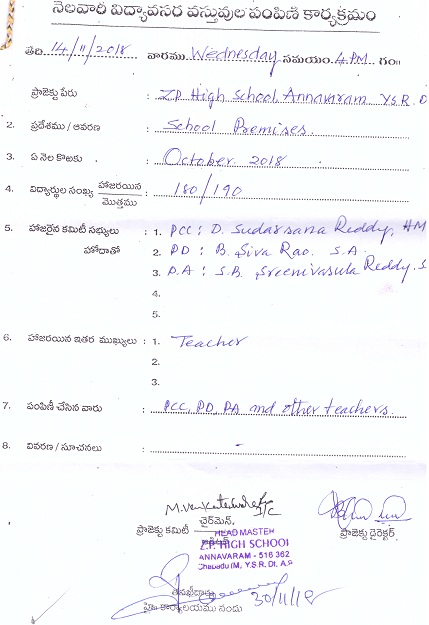 నెలవారీ విద్యావసర వస్తువుల పంపిణీ కార్యక్రమం
తేది 14/11/2018 వారము Wednesday సమయం 4 PM గం॥
ప్రాజెక్టు పేరు : Z.P. High School, Annavaram Y.S.R. D
2. ప్రదేశము / ఆవరణ : School Premises.
3. ఏ నెల కొఱకు : October 2018
4. విద్యార్థుల సంఖ్య హాజరయిన / మొత్తము : 180/190
5. హాజరైన కమిటీ సభ్యులు : 1. PCC : D. Sudarsana Reddy, HM
హోదాతో 2. PD : B. Siva Rao. S.A.
3. P.A : S.B. Sreenivasula Reddy, S
4.
5.
6. హాజరయిన ఇతర ముఖ్యులు : 1. Teacher
2.
3.
7. పంపిణీ చేసిన వారు : PCC, PD, PA and other teachers.
8. వివరణ / సూచనలు : -
చైర్‌మెన్,
ప్రాజెక్టు కమిటీ ప్రాజెక్టు డైరెక్టర్
HEAD MASTER
Z.P. HIGH SCHOOL
ANNAVARAM - 516 362
Chapadu (M), Y.S.R. Dt. A.P
30/11/18
కార్యాలయము నందు